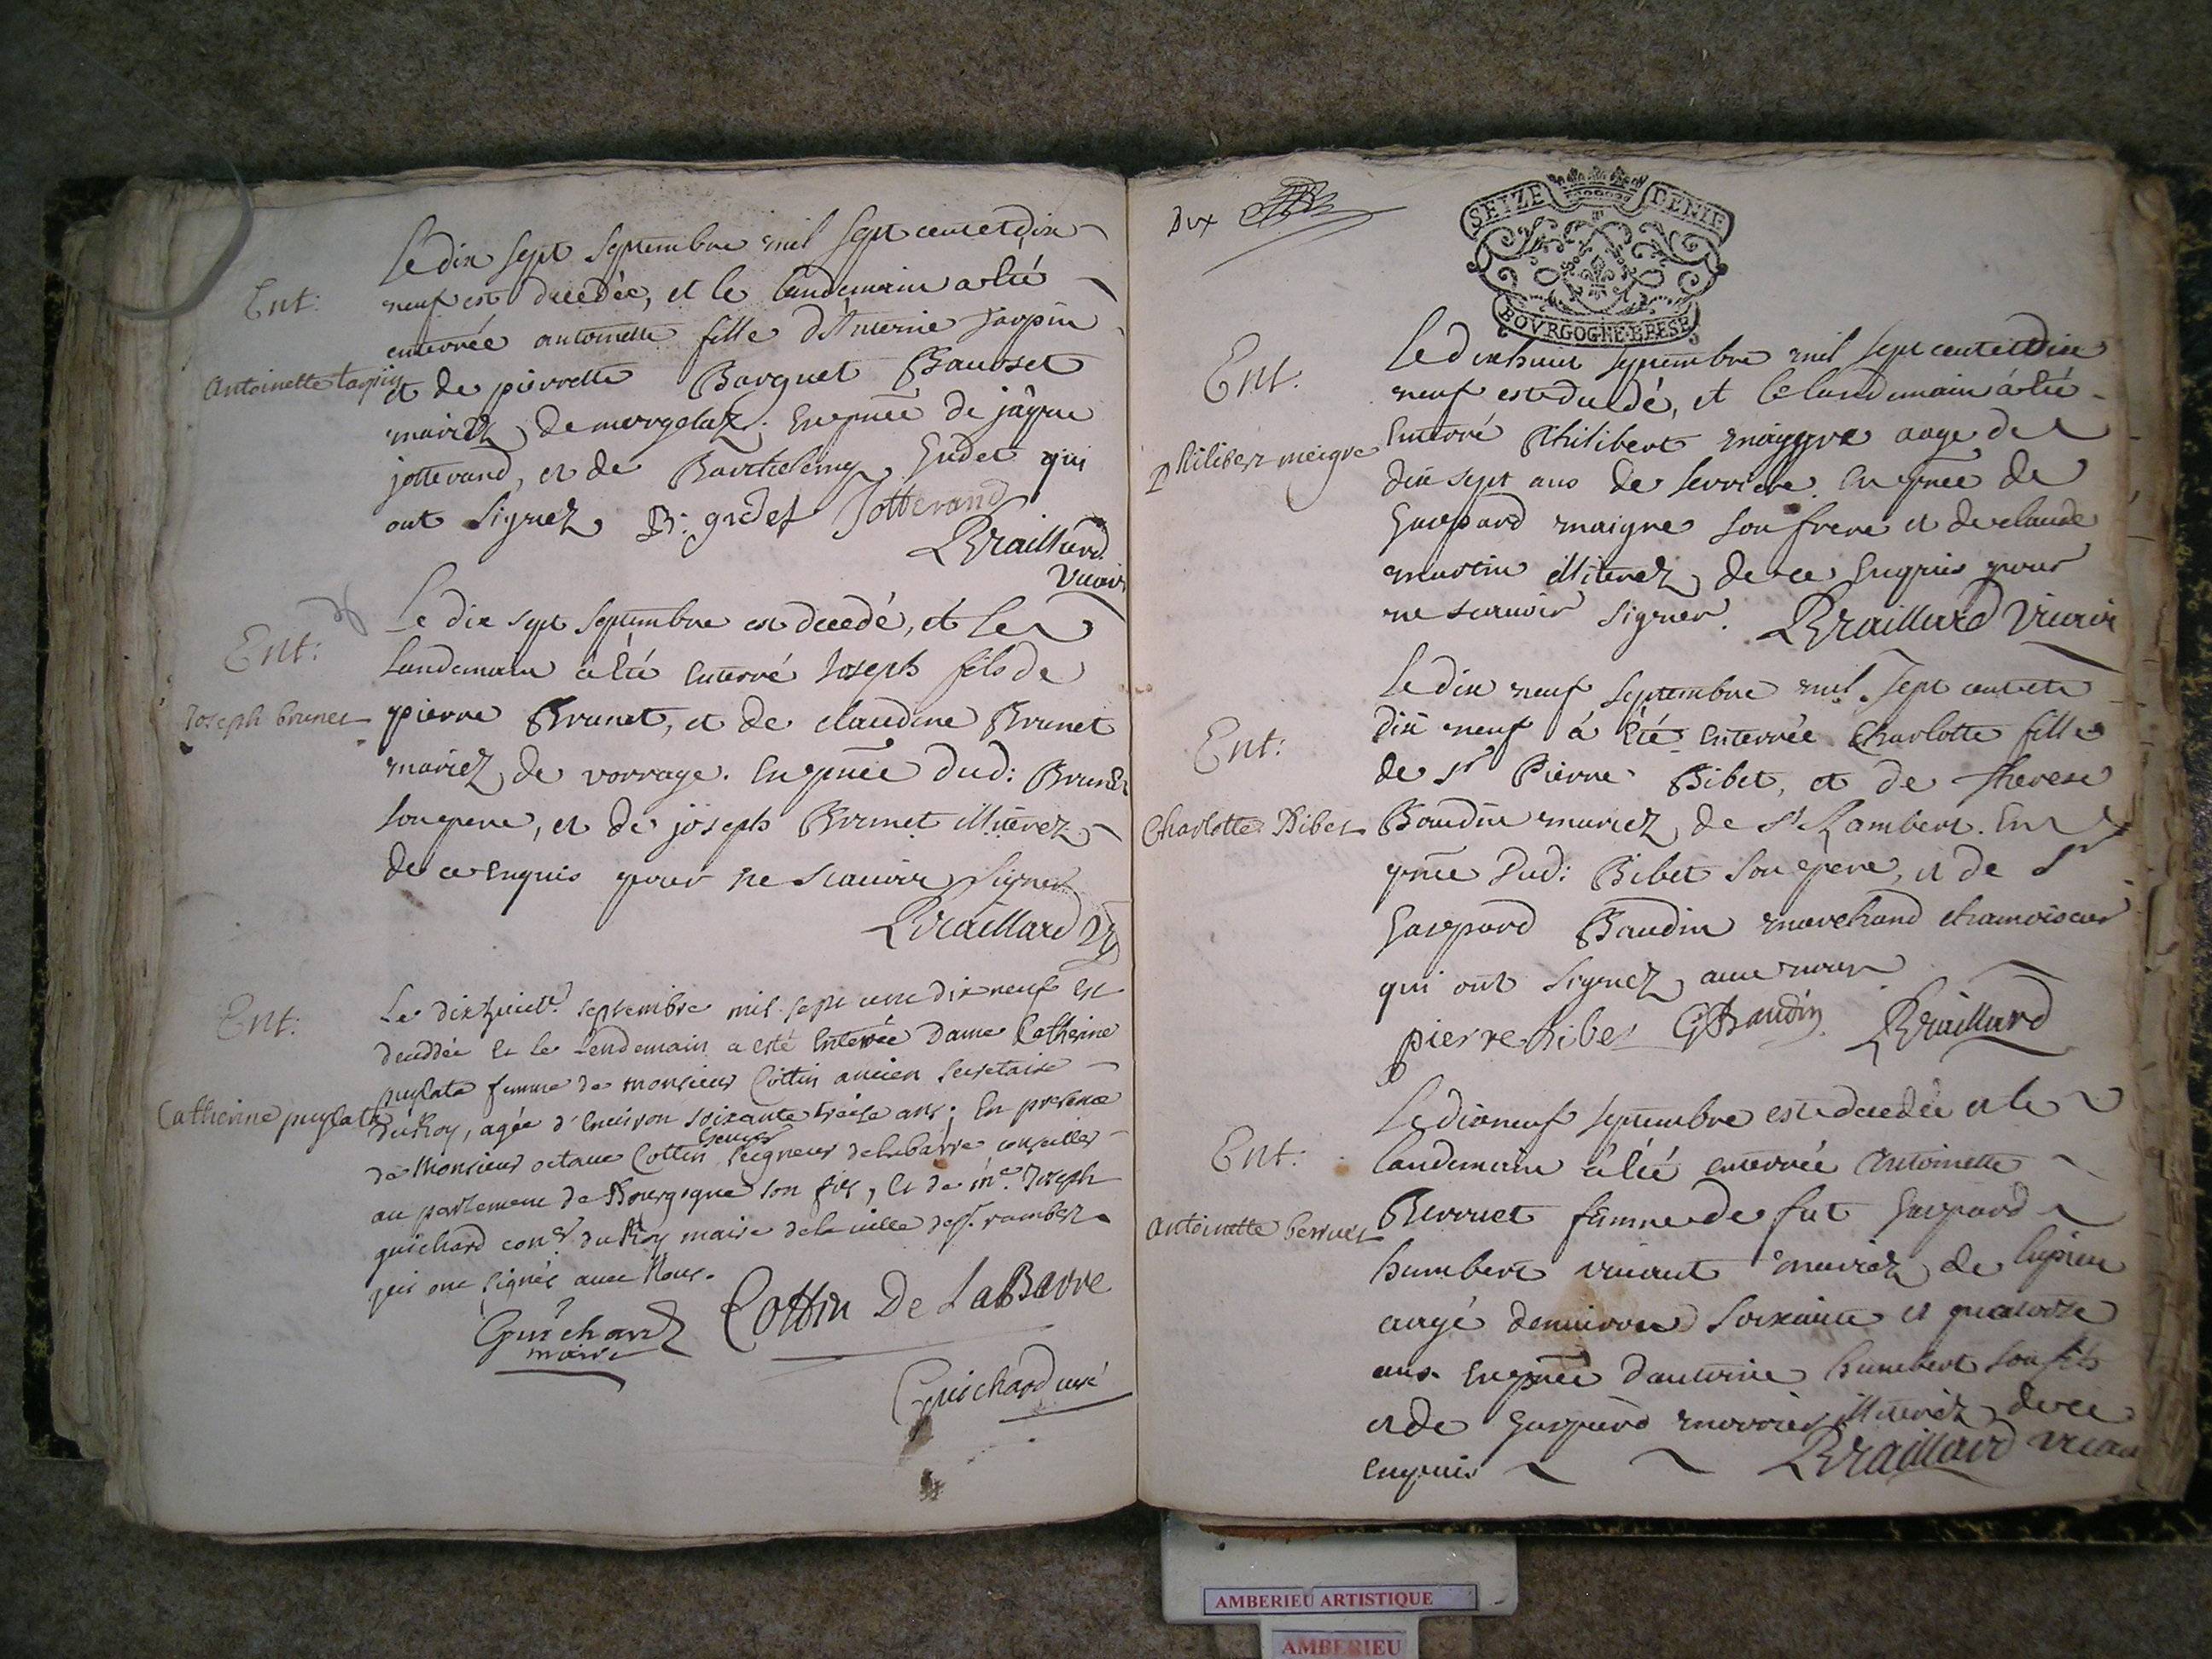 Ent:
Antoinette tarpin
Le dix sept septembre mil sept cent et dix
neuf est decedée, et le landemain a été
enterrée antoinette fille d'Anterme
et de pierrette Barquet
mariez, de En pnce de
jotterand, et de Barthelemy Gudet qui
ont signez, B: gudet Jotterand
Braillard
vicair
Ent:
Joseph brunet
Le dix sept septembre est decedé, et le
landemain à été enterré Joseph fils de
pierre Brunet, et de claudine Brunet
mariez, de vorrage. En pnce dud: Brunet
son pere, et de joseph Brunet illiterez
de ce enquis pour ne scauoir signer
Braillard
Ent:
Catherine puylata
Le dixhuict.e septembre mil sept cent dix neuf est
deceddée et le lendemain a esté enterrée Dame Catherine
puylata femme de monsieur Cottin ancien secretaire
du Roy, agée d'enuiron soixante treise ans; En presence
de Monsieur octaue Cottin seigneur delabarre conseiller
au parlement de Bourgogne son fils, et de me. Joseph
guichard con.er du Roy maire de la uille de st. rambert
qui ont signés auec Nous.
Guichard
maire
Cottin De LaBarre
Guichard curé
Dix
SEIZE DENIE
BOVRGOGNE·BRESE
Ent.
Philibert meigre
Le dixhuit septembre mil sept cent et dix
neuf est decedé, et le landemain à été
Enterré Philibert maygre aage de
dix sept ans de serriere. En pnce de
Gaspard maigre son frere et de claude
martin illiterez, de ce Enquis pour
ne scauoir signer. Braillard vicair
Ent:
Charlotte Bibet
Le dix neuf septembre mil sept cent et
dix neuf à été enterrée Charlotte fille
de sr Pierre Bibet, et de therese
Baudin mariez, de st Rambert. En
pnce dud: Bibet son pere, et de sr
Gaspard Baudin marchand chamoiseur
qui ont signez, auec nous
pierre bibet G Baudin Braillard
Ent:
antoinette berruet
Le dixneuf septembre est decedée et le
landemain à été enterrée Antoinette
Berruet femme de fut Gaspard
humbert viuant mariez, de lupieu
aagé denuiron soixante et quatorze
ans. En pnce d'anterme humbert son fils
et de Gaspard illiterez, de ce
enquis Braillard vicair
AMBERIEU ARTISTIQUE
AMBERIEU